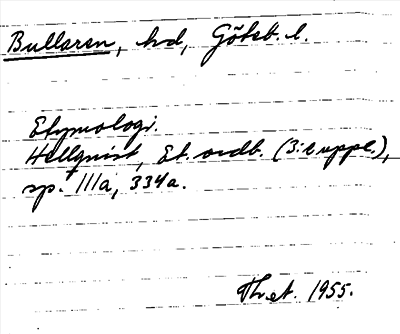 Bullaren, hd, Göteb. l.
Etymologi.
Hellquist, Et. ordb. (3:e uppl.),
sp. 111a, 334a.
Th.et. 1955.